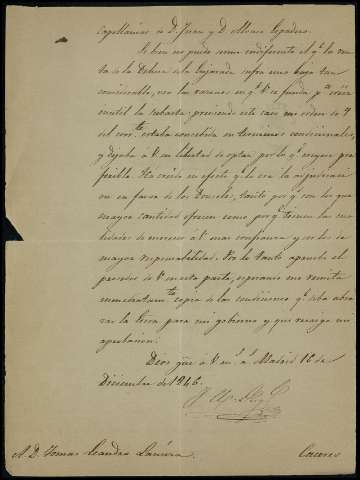 Capellanias de D. Juan y D. Alvaro
Si bien no puede serme indiferente el q.e la ren
ta de la Dehesa de la sufra una baja tan
considerable, veo las razones en q.e V. se funda p.a creer
inutil la subasta: previendo este caso mi orden de 4
del corr.te estaba concebida en terminos condicionales,
y dejaba á V. en libertad de optar por lo q.e creyera pre
feribl. Ha creido en efecto q.e lo era la adjudicacion
en favor de los Donceles, tanto p.r q.e son los que
mayor cantidad ofrecen como por q.e tienen la cua
lidad de merecer á V. mas confianza y ser los de
mayor responsabilidad. Por lo tanto apruebo el
proceder de V. en esta parte, esperando me remita
inmediatam.te copia de las condiciones q.e deba abra
zar la Escra. para mi gobierno y que recaiga mi
aprobacion.
Dios gũe á V. m.s a.s Madrid 16 de
Diciembre de 1846.
S. D. Tomas Leandro
Caceres